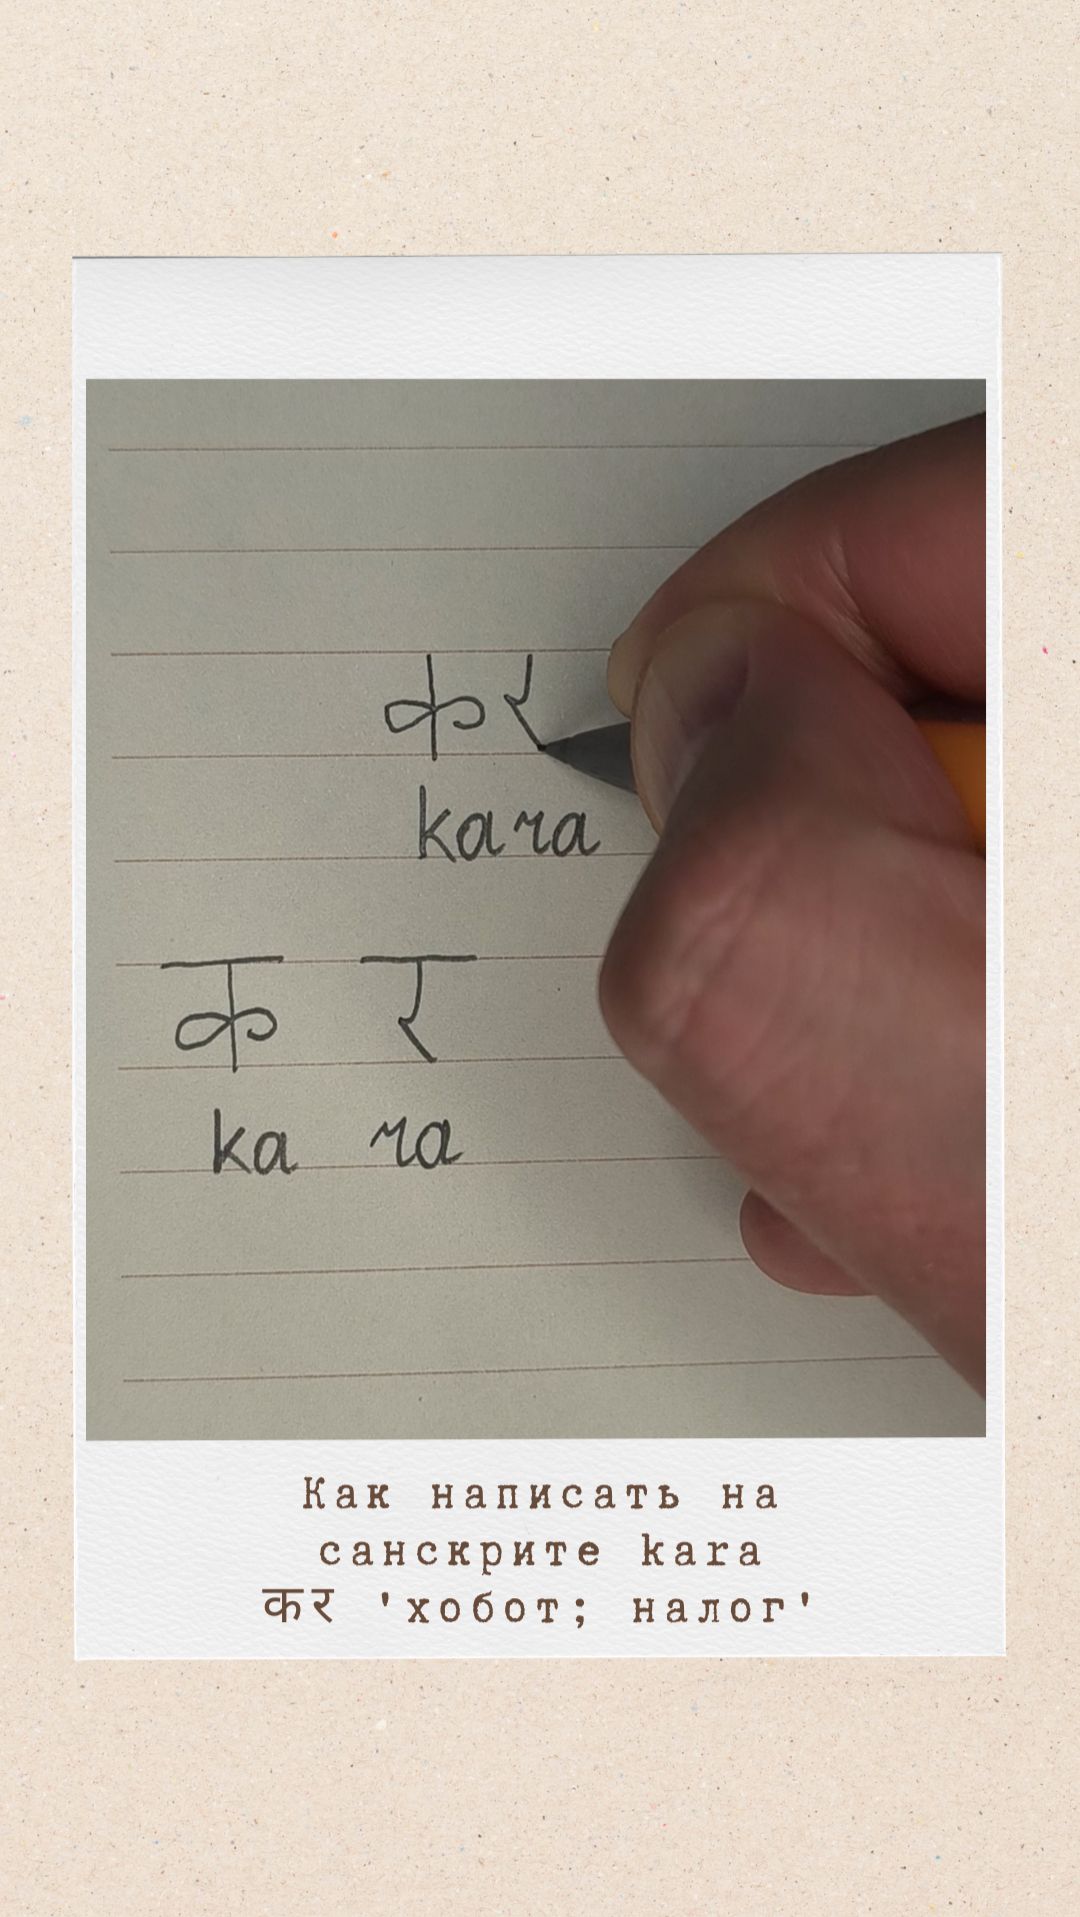 कर
kara
क र
ka ra
Как написать на
санскрите kara
कर 'хобот; налог'